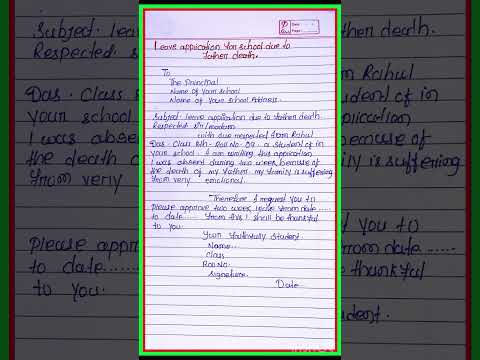 Leave application for school due to
father death.
Date
Page
To
The Principal
Name of Your school
Name of Your school Address.
Subject- leave application due to father death
Respected Sir/madam
with due respected from Rahul
Das. Class 8th. Roll No. 09. a student of in
your school. I am writing this application
I was absent during two week because of
the death of my father. my family is suffering
from very emotional.
Therefore I request you to
please approve two week leave from date.....
to date..... From this I shall be thankful
to you.
Your faithfully student.
Name..
Class
Roll No.
Signature.
Date
Subject. leave
Respected
Das. Class
your school
I was absent
the death o
from very
Please appro
to date......
to you.
father death.
om Rahul
student of in
plication
ecause of
y is suffering
u to
from date.....
e thankful
udent.